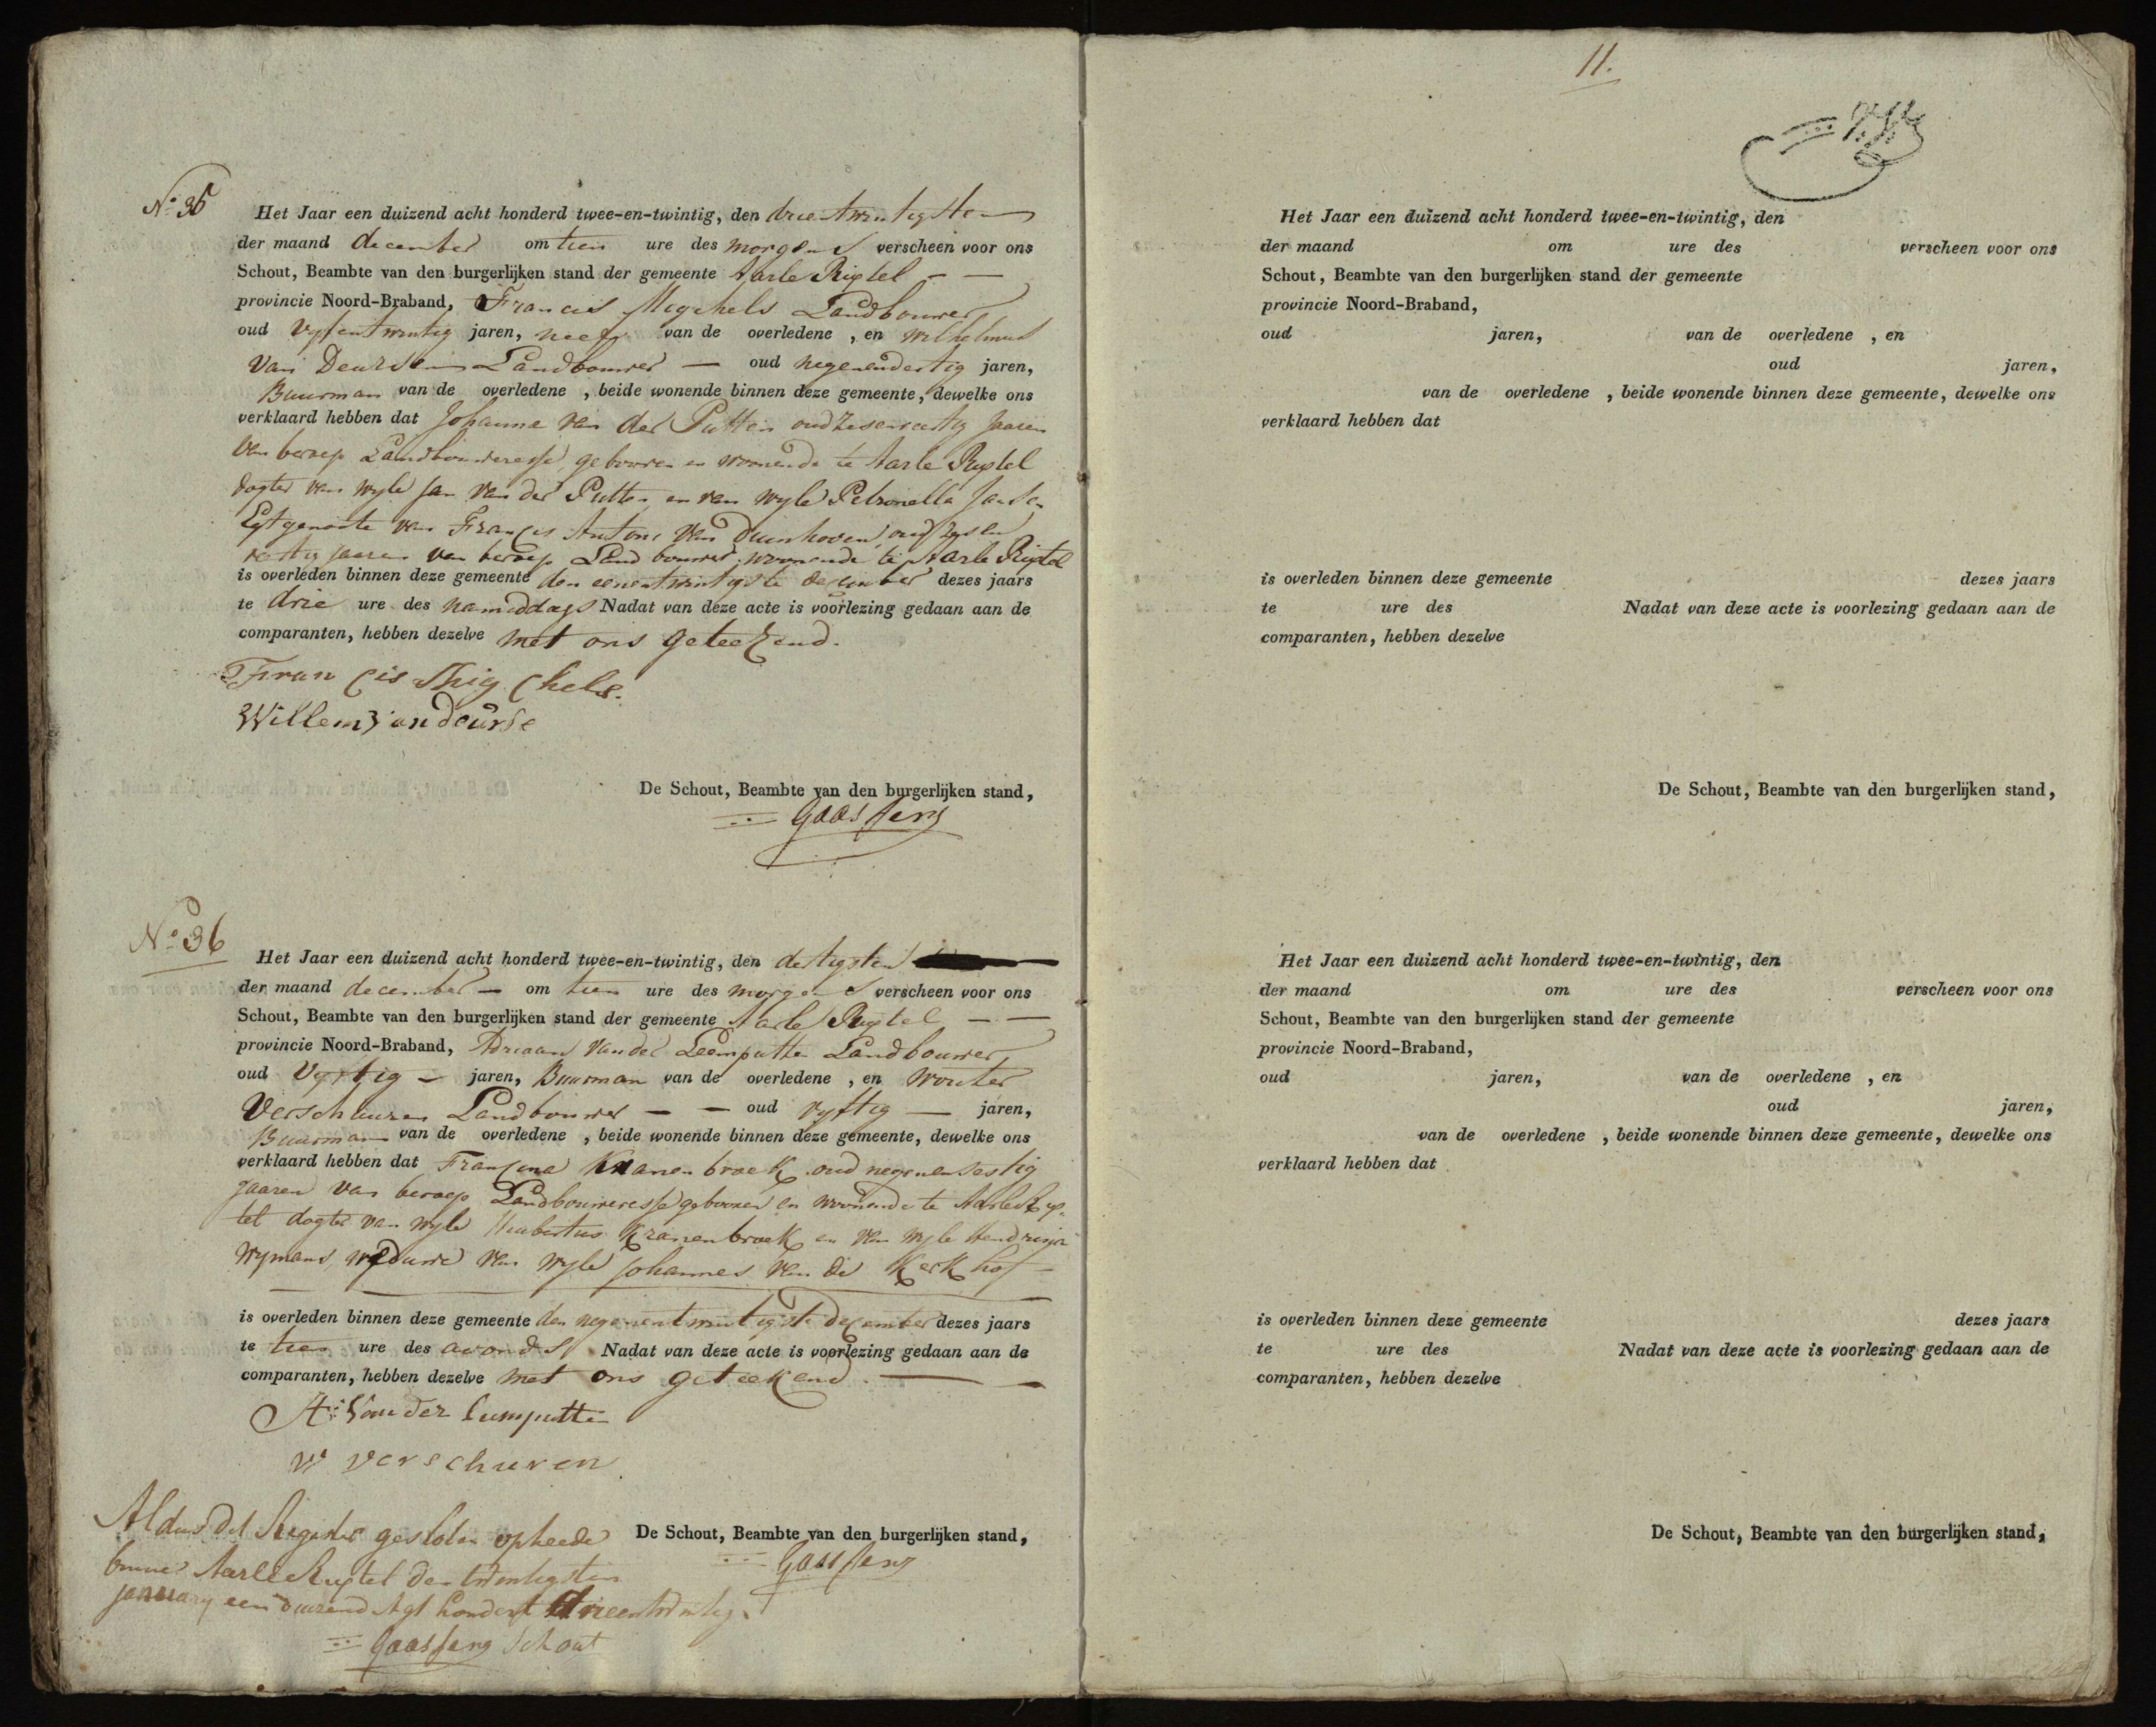 No 35
Het Jaar een duizend acht honderd twee-en-twintig, den drieentwintigsten
der maand december om tien ure des morgens verscheen voor ons
Schout, Beambte van den burgerlijken stand der gemeente Aarle Rixtel - -
provincie Noord-Braband, Francis Migchels Landbouwer
oud vyfentwintig jaren, neef van de overledene , en wilhelmus
van Deursen Landbouwer — oud negenendertig jaren,
Buurman van de overledene , beide wonende binnen deze gemeente, dewelke ons
verklaard hebben dat Johanna van der Putten oud Jaaren
van beroep Landbouweresse, gebooren en woonende te Aarle Rixtel
dogter van wyle Jan van der Putten en van wyle Petronella Janse
Egtgenoote van Francis Antoni van Duinhoven, oud
jaaren van beroep Land bouwer, woonende te Aarle Rixtel
is overleden binnen deze gemeente den eenentwintigste december dezes jaars
te drie ure des namiddags Nadat van deze acte is voorlezing gedaan aan de
comparanten, hebben dezelve met ons geteekend.
Francis Migchels.
Willem van deurse
De Schout, Beambte van den burgerlijken stand,
No 36
Het Jaar een duizend acht honderd twee-en-twintig, den dertigsten
der maand december — om tien ure des morgens verscheen voor ons
Schout, Beambte van den burgerlijken stand der gemeente Aarle Rixtel - -
provincie Noord-Braband, Adriaan van der Leemputten Landbouwer,
oud jaren, Buurman van de overledene , en Wouter
Verschuuren Landbouwer — — oud vyftig — jaren,
Buurman van de overledene , beide wonende binnen deze gemeente, dewelke ons
verklaard hebben dat Francina Kranenbroek oud negenensestig
jaaren van beroep Landbouweresse gebooren en woonende te Aarle Rix-
tel dogter van wyle Huibertus Kranenbroek en van wyle Hendrina
Wymans, weduwe van wyle Johannes van de Kerkhof
is overleden binnen deze gemeente den negenentwintigste December dezes jaars
te tien ure des avonds Nadat van deze acte is voorlezing gedaan aan de
comparanten, hebben dezelve met ons geteekend.
A: van der Leemputten
W verschuren
De Schout, Beambte van den burgerlijken stand,
Aldus dit Register gesloten op heede
binne Aarle Rixtel den twintigsten
January een duizend Agt honderd drieentwintig.
Schout
11.
Het Jaar een duizend acht honderd twee-en-twintig, den
der maand om ure des verscheen voor ons
Schout, Beambte van den burgerlijken stand der gemeente
provincie Noord-Braband,
oud jaren, van de overledene , en
oud jaren,
van de overledene , beide wonende binnen deze gemeente, dewelke ons
verklaard hebben dat
is overleden binnen deze gemeente dezes jaars
te ure des Nadat van deze acte is voorlezing gedaan aan de
comparanten, hebben dezelve
De Schout, Beambte van den burgerlijken stand,
Het Jaar een duizend acht honderd twee-en-twintig, den
der maand om ure des verscheen voor ons
Schout, Beambte van den burgerlijken stand der gemeente
provincie Noord-Braband,
oud jaren, van de overledene , en
oud jaren,
van de overledene , beide wonende binnen deze gemeente, dewelke ons
verklaard hebben dat
is overleden binnen deze gemeente dezes jaars
te ure des Nadat van deze acte is voorlezing gedaan aan de
comparanten, hebben dezelve
De Schout, Beambte van den burgerlijken stand,